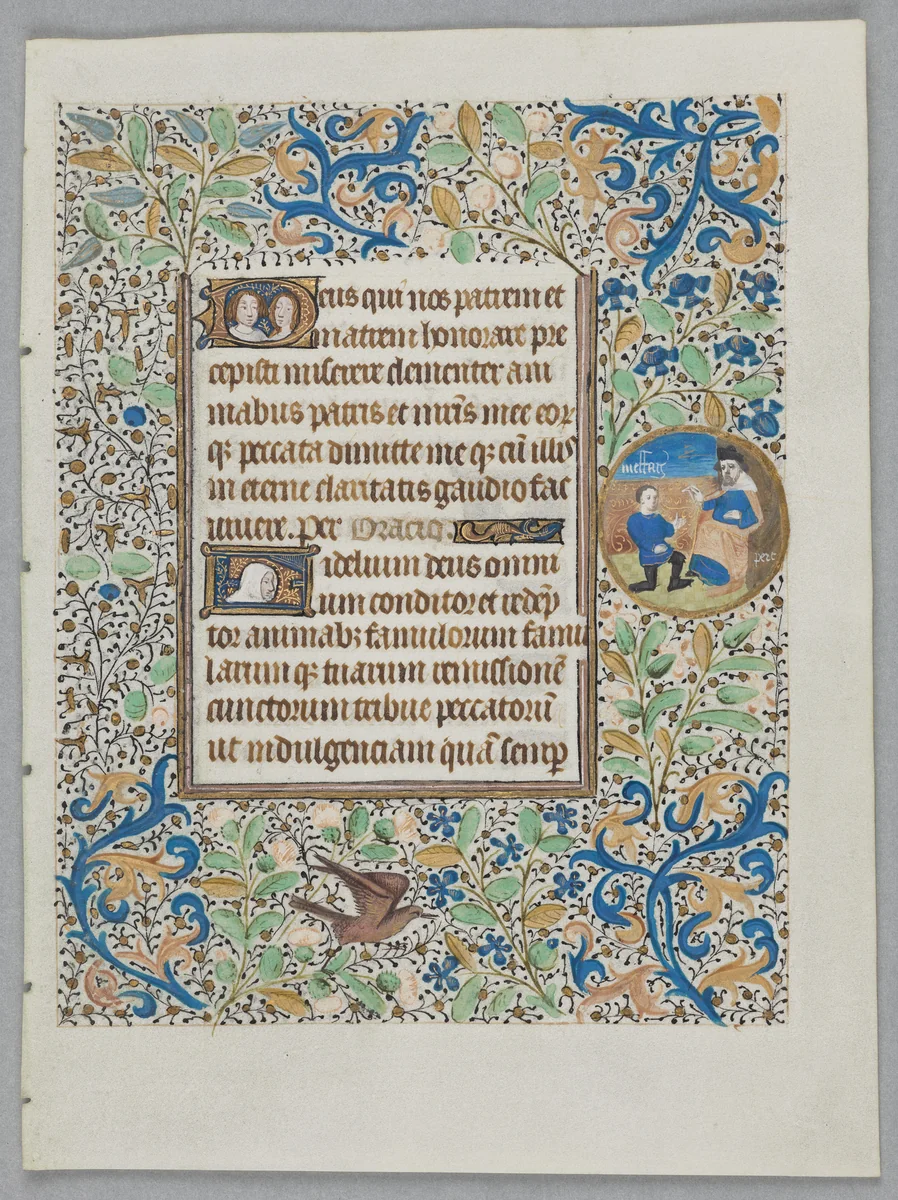 Deus qui nos patrem et
matrem honorare pre
cepisti miserere clementer ani
mabus patris et mr̄is mee eoꝝ
qꝫ peccata dimitte me qꝫ cū illis
in eterne claritatis gaudio fac
vivere. Per Oracio.
Fidelium deus omni
um conditor et redēp
tor animabꝫ famulorum famu
larum qꝫ tuarum remissionē
cunctorum tribue peccatorū
ut indulgenciam quā semꝑ